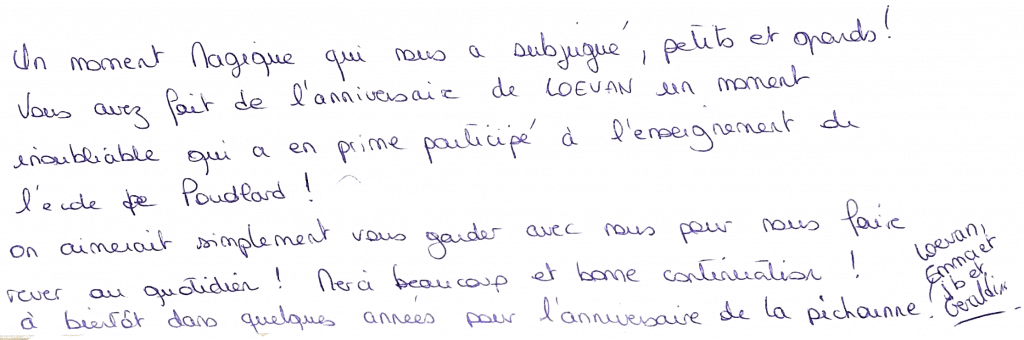 Un moment Magique qui nous a subjugué, petits et grands !
Vous avez fait de l'anniversaire de LOEVAN un moment
inoubliable qui a en prime participé à l'enseignement de
l'école de Poudlard !
on aimerait simplement vous garder avec nous pour nous faire
rever au quotidien ! Merci beaucoup et bonne continuation !
à bientôt dans quelques années pour l'anniversaire de la pichounne.
Loevan,
Emma et
Jb et
Géraldine